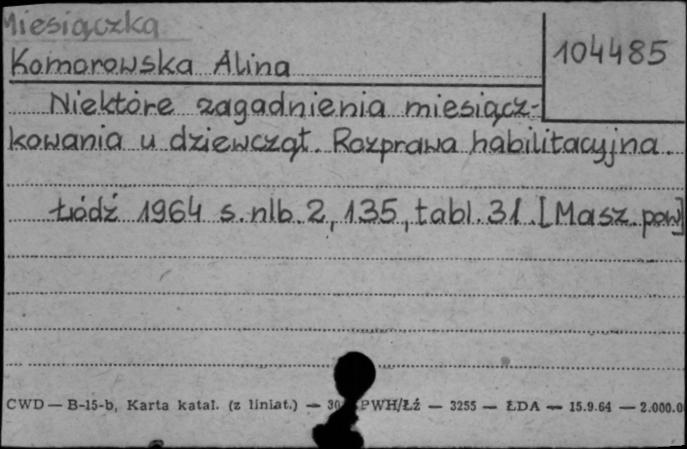 Miesiączka
104485
Komorowska Alina
Niektóre zagadnienia miesiącz-
kowania u dziewcząt. Rozprawa habilitacyjna.
Łódź 1964 s. nlb. 2, 135, tabl. 31. [Masz. pow]
CWD — B-15-b, Karta katal. (z liniat.) — PWH/Łź — 3255 — ŁDA — 15.9.64 — 2.000.0